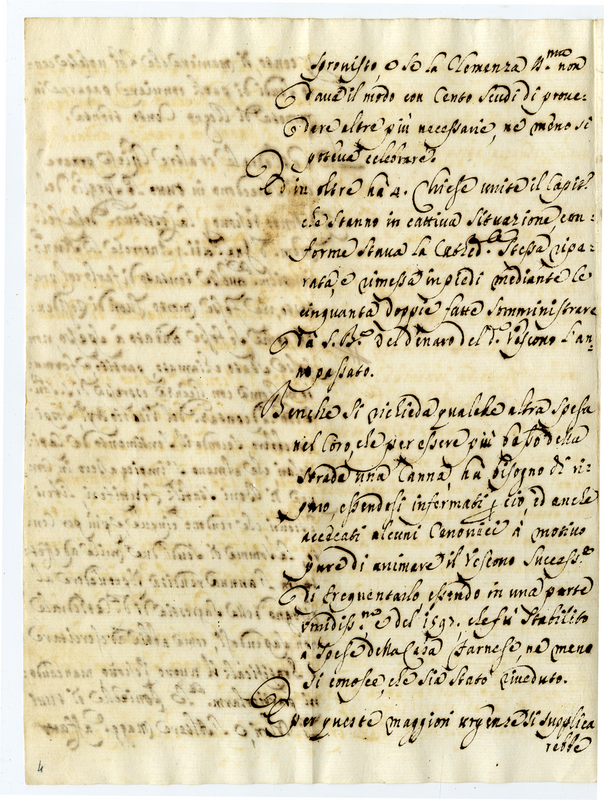 sprovisto, e se la Clemenza V.ma non
dava il modo con Cento Scudi di prove-
dere altre più necessarie, nè meno si
poteva celebrare.
Ed in oltre hà 4. Chiese unite il Capit.o
che stanno in cattiva situazione, con-
forme stava la Cathed.le stessa ripa-
rata, e rimessa in piedi mediante le
cinquanta doppie fatte somministrare
da S. B.e del denaro del d.o Vescovo l'an-
no passato.
Benche si richieda qualche altra spesa
nel Coro, che per essere più basso della
strada una Canna, hà bisogno di ri-
paro, essendosi infermati p ciò, ed anche
accecati alcuni Canonici à motivo
pure di animare il Vescovo Success.e
di frequentarlo essendo in una parte
umidiss.ma e del 1597. che fù stabilito
à spese della Casa Farnese, nè meno
si conosce, che sia stato riveduto.
E per queste maggiori urgenze si supplica
rebbe
4